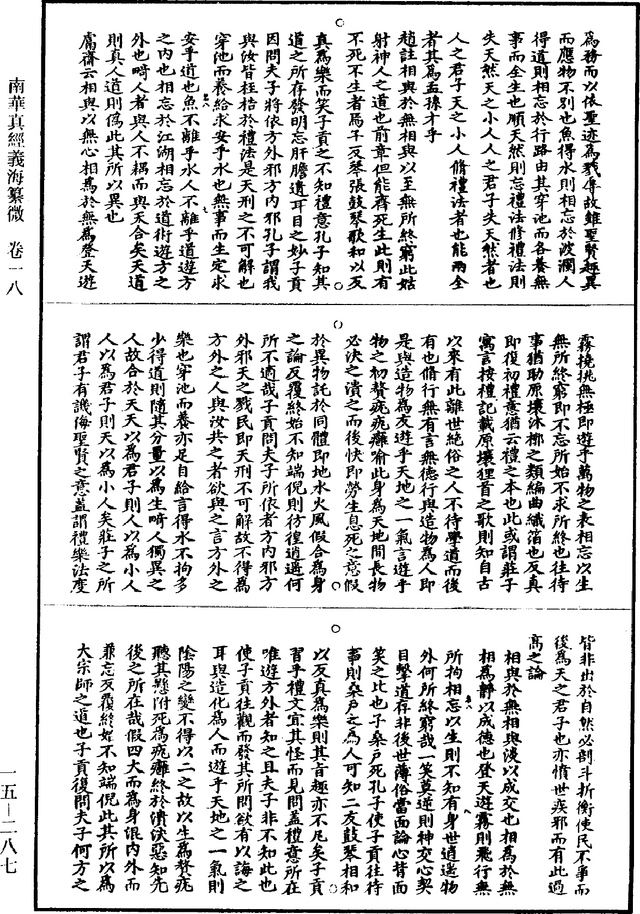 南華真經義海纂微 卷一八
一五—二八七
為務而以依聖迹為戮辱故雖聖賢趣異
而應物不別也魚得水則相忘於波瀾人
得道則相忘於行路由其穿池而各養無
事而全生也順天然則忘禮法修禮法則
失天然天之小人人之君子失天然者也
人之君子天之小人脩禮法者也能兩全
者其為孟孫才乎
趙註相與於無相與以至無所終窮此姑
射神人之道也前章但能齊死生此則有
不死不生者焉子反琴張鼓琴歌和以反
真為樂而笑子貢之不知禮意孔子知其
道之所存發明忘肝膽遺耳目之妙子貢
因問夫子將依方外邪方內邪孔子謂我
與汝皆桎梏於禮法是天刑之不可解也
穿池而養給求安乎水也無事而生定求
安乎道也魚不離乎水人不離乎道遊方
之內也相忘於江湖相忘於道術遊方之
外也畸人者與人不耦而與天合矣天道
則真人道則偽此其所以異也
鬳齋云相與以無心相為於無為登天遊
霧撓挑無極即遊乎萬物之表相忘以生
無所終窮即不忘所始不求所終也往待
事猶助原壤沐槨之類編曲織箔也反真
即復初禮意猶云禮之本也此或謂莊子
寓言按禮記載原壤狸首之歌則知自古
以來有此離世絕俗之人不待學道而後
有也脩行無有言無德行與造物為人即
是與造物為友遊乎天地之一氣言遊乎
物之初贅疣癰喻此身為天地間長物
必決之潰之而後快即勞生息死之意假
於異物託於同體即地水火風假合為身
之論反覆終始不知端倪則彷徨逍遙何
所不適哉子貢問夫子所依者方內邪方
外邪天之戮民即天刑不可解故不得為
方外之人與汝共之者欲與之言方外之
樂也穿池而養亦足自給言得水不拘多
少得道則隨其分量以為生畸人獨異之
人故合於天天以為君子則人以為小人
人以為君子則天以為小人矣莊子之所
謂君子有譏侮聖賢之意蓋謂禮樂法度
皆非出於自然必剖斗折衡使民不爭而
後為天之君子也亦憤世疾邪而有此過
高之論
相與於無相與淡以成交也相為於無
相為靜以成德也登天遊霧則飛行無
所拘相忘以生則不知有身世逍遙物
外何所終窮哉一笑莫逆則神交心契
目擊道存非後世薄俗當面論心背面
笑之比也子桑戶死孔子使子貢往待
事則桑戶之為人可知二友鼓琴相和
以反真為樂則其旨趣亦不凡矣子貢
習乎禮文宜其怪而見問蓋禮意所在
唯遊方外者知之且夫子非不知此也
使子貢往觀而發其所問欲有以誨之
耳與造化為人而遊乎天地之一氣則
陰陽之變不得以二之故以生為贅疣
聽其懸附死為疣癰終於潰決惡知先
後之所在哉假四大而為身泯內外而
兼忘反覆終始不知端倪此其所以為
大宗師之道也子貢復問夫子何方之